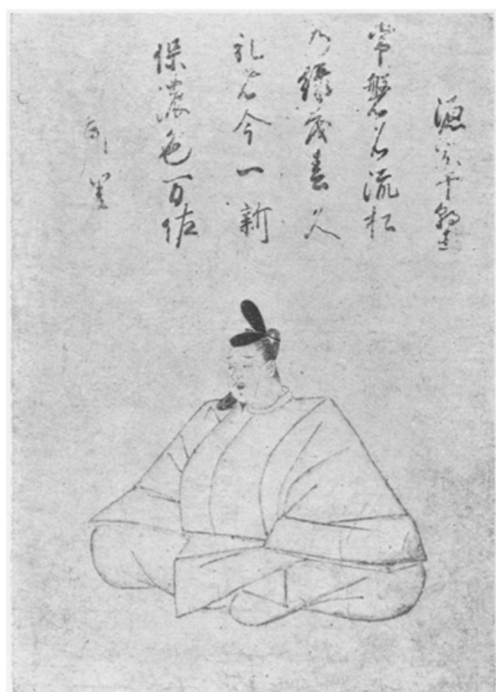 源宗于朝臣
常磐名流松
乃緑茂春久
礼者今一新
保濃色万佐